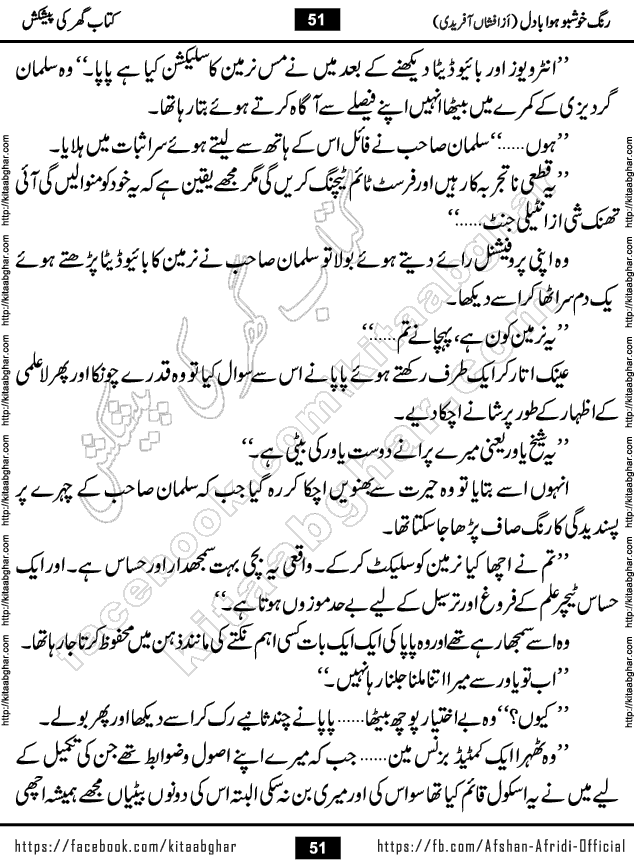 رنگ خوشبو ہوا بادل (از افشاں آفریدی)
51
کتاب گھر کی پیشکش
’’انٹرویوز اور بائیو ڈیٹا دیکھنے کے بعد میں نے مس نرمین کا سلیکشن کیا ہے پاپا۔‘‘ وہ سلمان
گردیزی کے کمرے میں بیٹھا انہیں اپنے فیصلے سے آگاہ کرتے ہوئے بتا رہا تھا۔
’’ہوں......‘‘ سلمان صاحب نے فائل اس کے ہاتھ سے لیتے ہوئے سر اثبات میں ہلایا۔
’’یہ قطعی ناتجربہ کار ہیں اور فرسٹ ٹائم ٹیچنگ کریں گی مگر مجھے یقین ہے کہ یہ خود کو منوالیں گی آئی
تھنک شی از انٹیلی جنٹ......‘‘
وہ اپنی پروفیشنل رائے دیتے ہوئے بولا تو سلمان صاحب نے نرمین کا بائیو ڈیٹا پڑھتے ہوئے
یک دم سر اٹھا کر اسے دیکھا۔
’’یہ نرمین کون ہے، پہچانے تم......‘‘
عینک اتار کر ایک طرف رکھتے ہوئے پاپا نے اس سے سوال کیا تو وہ قدرے چونکا اور پھر لاعلمی
کے اظہار کے طور پر شانے اچکا دیے۔
’’یہ شیخ یاور یعنی میرے پرانے دوست یاور کی بیٹی ہے۔‘‘
انہوں اسے بتایا تو وہ حیرت سے بھنویں اچکا کر رہ گیا جب کہ سلمان صاحب کے چہرے پر
پسندیدگی کا رنگ صاف پڑھا جا سکتا تھا۔
’’تم نے اچھا کیا نرمین کو سلیکٹ کر کے۔ واقعی یہ بچی بہت سمجھدار اور حساس ہے۔ اور ایک
حساس ٹیچر علم کے فروغ اور ترسیل کے لیے بے حد موزوں ہوتا ہے۔‘‘
وہ اسے سمجھا رہے تھے اور وہ پاپا کی ایک ایک بات کسی اہم نکتے کی مانند ذہن میں محفوظ کرتا جا رہا تھا۔
’’اب تو یاور سے میرا اتنا ملنا جلنا رہا نہیں۔‘‘
’’کیوں؟‘‘ وہ بے اختیار پوچھ بیٹھا...... پاپا نے چند ثانیے رک کر اسے دیکھا اور پھر بولے۔
’’وہ ٹھہرا ایک کمٹیڈ بزنس مین...... جب کہ میرے اپنے اصول و ضوابط تھے جن کی تکمیل کے
لیے میں نے یہ اسکول قائم کیا تھا سو اس کی اور میری بن نہ سکی البتہ اس کی دونوں بیٹیاں مجھے ہمیشہ اچھی
https://facebook.com/kitaabghar
51
https://fb.com/Afshan-Afridi-Official
http://kitaabghar.com http://kitaabghar.com http://kitaabghar.com http://kitaabghar.com http://kitaabghar.com http://kitaabghar.com
http://kitaabghar.com http://kitaabghar.com http://kitaabghar.com http://kitaabghar.com http://kitaabghar.com http://kitaabghar.com
کتاب گھر کی پیشکش
kitaabghar.com
facebook.com/kitaabghar